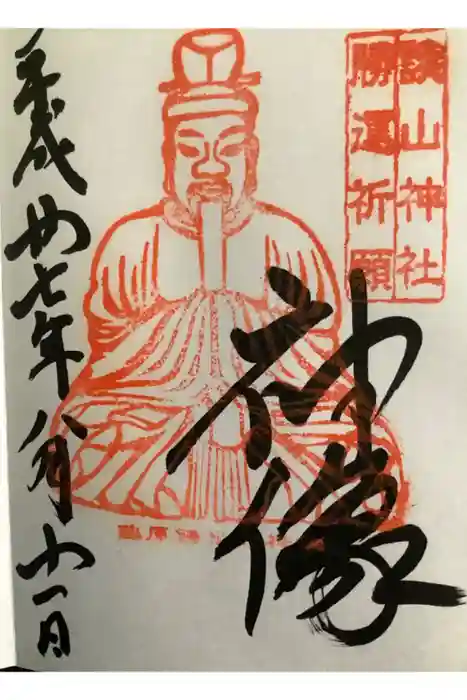 談山神社
勝運祈願
神像
平成廿七年八月廿一日